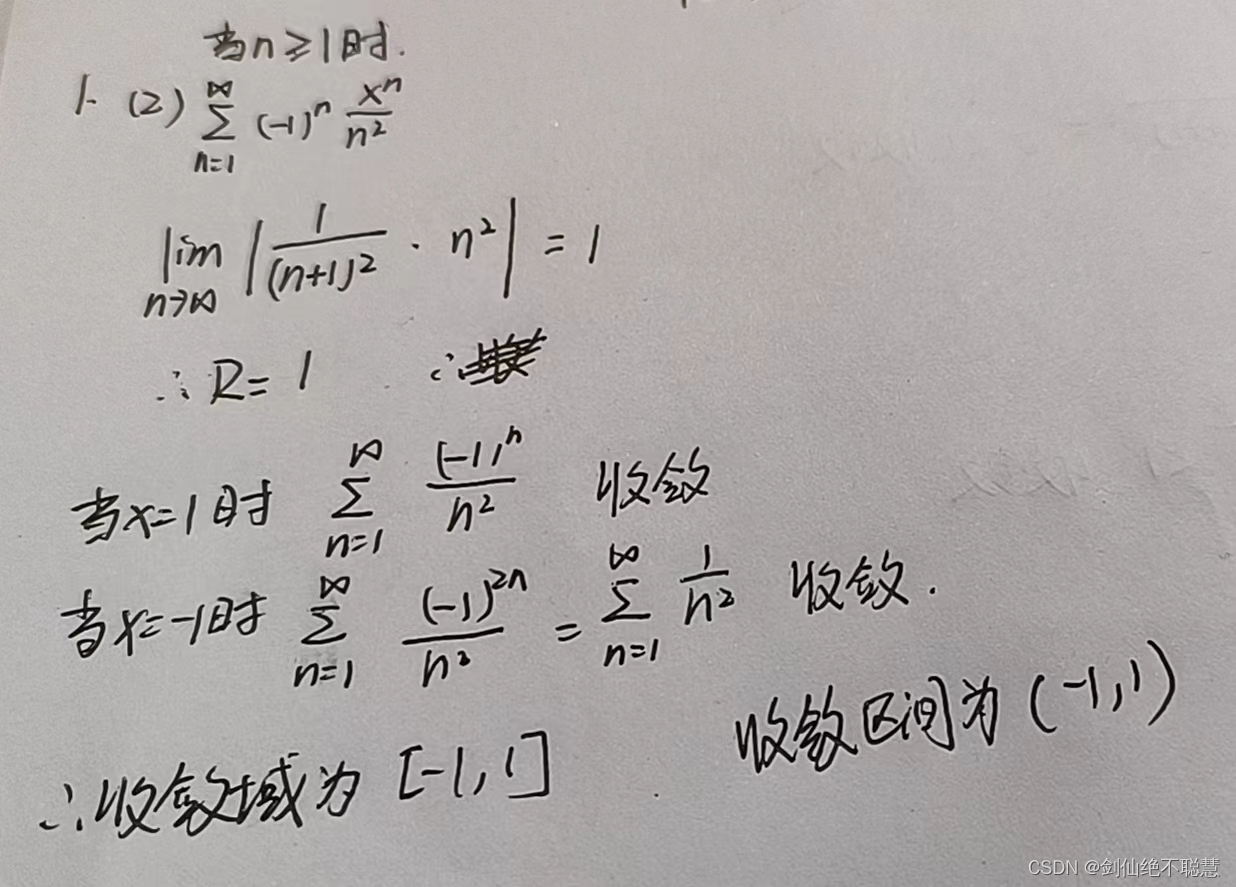 当n≥1时.
1. (2) ∑_{n=1}^{∞} (-1)^n x^n/n^2
lim_{n→∞} |1/(n+1)^2 · n^2| = 1
∴ R = 1 ∴
当x=1时 ∑_{n=1}^{∞} (-1)^n/n^2 收敛
当x=-1时 ∑_{n=1}^{∞} (-1)^{2n}/n^2 = ∑_{n=1}^{∞} 1/n^2 收敛.
收敛区间为 (-1,1)
∴收敛域为 [-1,1]
CSDN @剑仙绝不聪慧